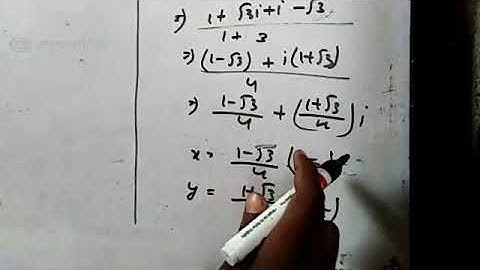 ⇒) 1 + √3i + i - √3 / 1 + 3
⇒) (1-√3) + i(1+√3) / 4
⇒) 1-√3 / 4 + (1+√3 / 4) i
x = 1-√3 / 4 (-
y = 1+√3